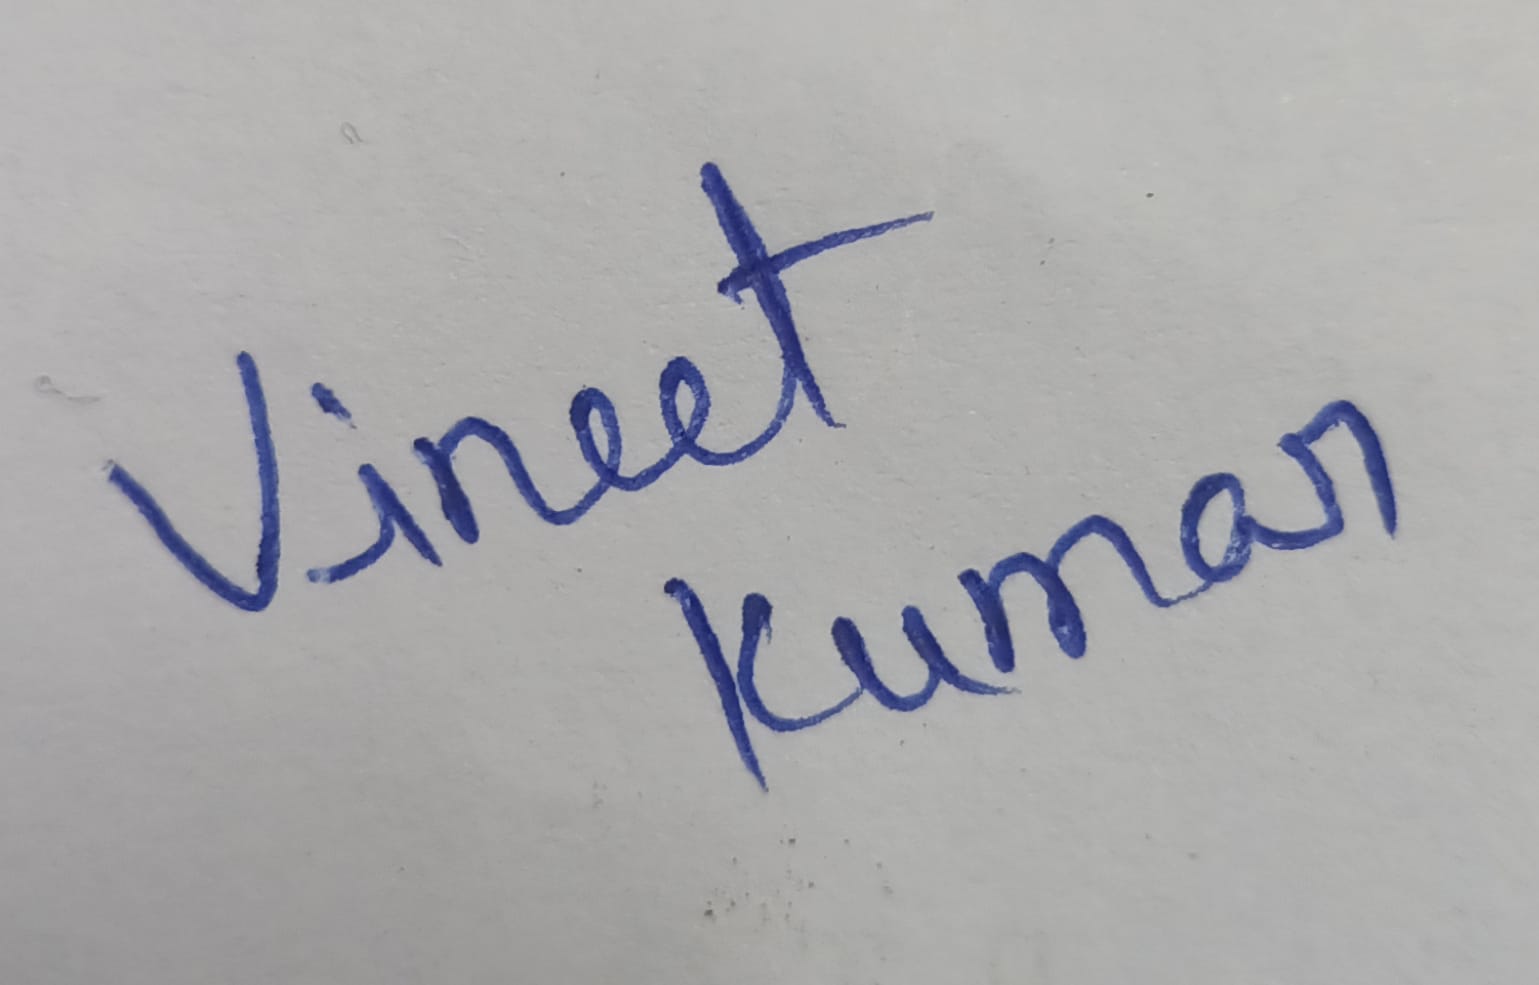 Vineet
Kumar